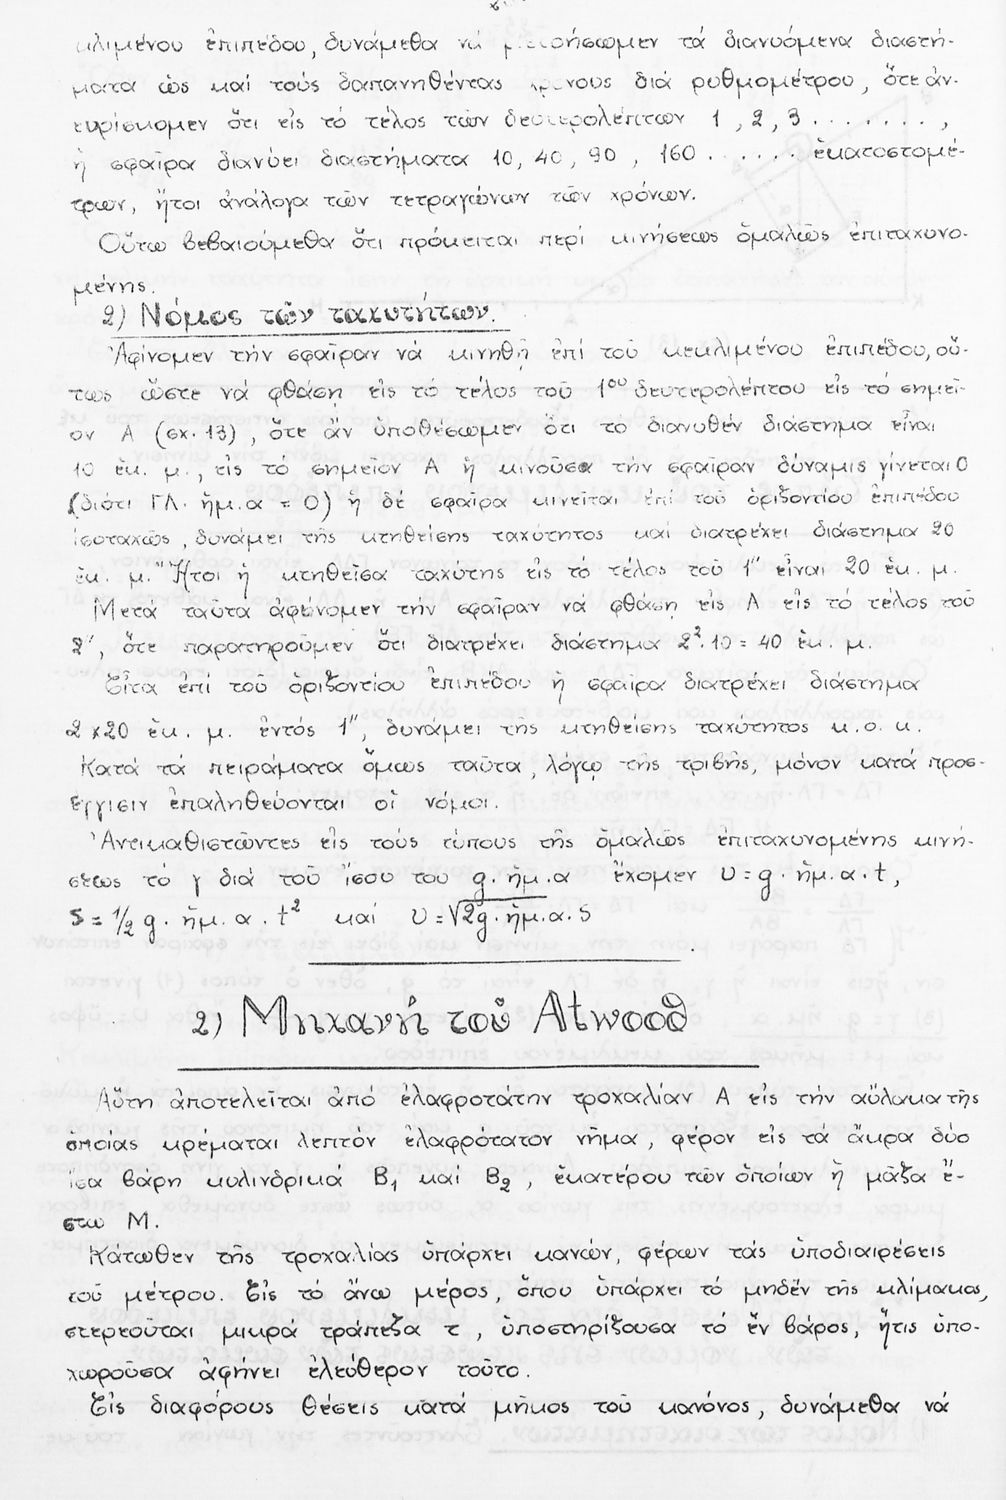 κλιμένου ἐπιπέδου, δυνάμεθα νά μετρήσωμεν τά διανυόμενα διαστή-
ματα ὡς καί τούς δαπανηθέντας χρόνους διά ρυθμομέτρου, ὅτε ἀν-
ευρίσκομεν ὅτι εἰς τό τέλος τῶν δευτερολέπτων 1, 2, 3 . . . . . . . ,
ἡ σφαῖρα διανύει διαστήματα 10, 40, 90, 160 . . . . . . ἑκατοστομέ-
τρων, ἤτοι ἀνάλογα τῶν τετραγώνων τῶν χρόνων.
Οὕτω βεβαιούμεθα ὅτι πρόκειται περί κινήσεως ὁμαλῶς ἐπιταχυνο-
μένης.
2) Νόμος τῶν ταχυτήτων.
Ἀφίνομεν τήν σφαῖραν νά κινηθῇ ἐπί τοῦ κεκλιμένου ἐπιπέδου, οὕ-
τως ὥστε νά φθάσῃ εἰς τό τέλος τοῦ 1ου δευτερολέπτου εἰς τό σημεῖ-
ον Α (σχ. 13), ὅτε ἄν ὑποθέσωμεν ὅτι το διανυθέν διάστημα εἶναι
10 ἑκ. μ., εἰς τό σημεῖον Α ἡ κινοῦσα τήν σφαῖραν δύναμις γίνεται 0
(διότι ΓΛ. ἡμ. α = 0) ἡ δέ σφαῖρα κινεῖται ἐπί τοῦ ὁριζοντίου ἐπιπέδου
ἰσοταχῶς, δυνάμει τῆς κτηθείσης ταχύτητος καί διατρέχει διάστημα 20
ἑκ. μ. Ἤτοι ἡ κτηθεῖσα ταχύτης εἰς τό τέλος τοῦ 1" εἶναι 20 ἑκ. μ.
Μετά ταῦτα ἀφίνομεν τήν σφαῖραν νά φθάσῃ εἰς Α εἰς τό τέλος τοῦ
2", ὅτε παρατηροῦμεν ὅτι διατρέχει διάστημα 2². 10 = 40 ἑκ. μ.
Εἶτα ἐπί τοῦ ὁριζοντίου ἐπιπέδου ἡ σφαῖρα διατρέχει διάστημα
2 x 20 ἑκ. μ. ἐντός 1", δυνάμει τῆς κτηθείσης ταχύτητος κ. ο. κ.
Κατά τά πειράματα ὅμως ταῦτα, λόγῳ τῆς τριβῆς, μόνον κατά προσ-
έγγισιν ἐπαληθεύονται οἱ νόμοι.
Ἀντικαθιστῶντες εἰς τούς τύπους τῆς ὁμαλῶς ἐπιταχυνομένης κινή-
σεως τό γ διά τοῦ ἴσου του g. ἡμ. α ἔχομεν υ = g. ἡμ. α . t,
s = 1/2 g. ἡμ. α . t² καί υ = √2g. ἡμ. α. s
2) Μηχανή τοῦ Atwood
Αὕτη ἀποτελεῖται ἀπό ἐλαφροτάτην τροχαλίαν Α εἰς τήν αὔλακα τῆς
ὁποίας κρέμαται λεπτόν ἐλαφρότατον νῆμα, φέρον εἰς τά ἄκρα δύο
ἴσα βάρη κυλινδρικά Β₁ καί Β₂, ἑκατέρου τῶν ὁποίων ἡ μᾶζα ἔ-
στω Μ.
Κάτωθεν τῆς τροχαλίας ὑπάρχει κανών, φέρων τάς ὑποδιαιρέσεις
τοῦ μέτρου. Εἰς τό ἄνω μέρος, ὅπου ὑπάρχει τό μηδέν τῆς κλίμακος,
στερεοῦται μικρά τράπεζα τ, ὑποστηρίζουσα τό ἕν βάρος, ἥτις ὑπο-
χωροῦσα ἀφήνει ἐλεύθερον τοῦτο.
Εἰς διαφόρους θέσεις κατά μῆκος τοῦ κανόνος, δυνάμεθα νά